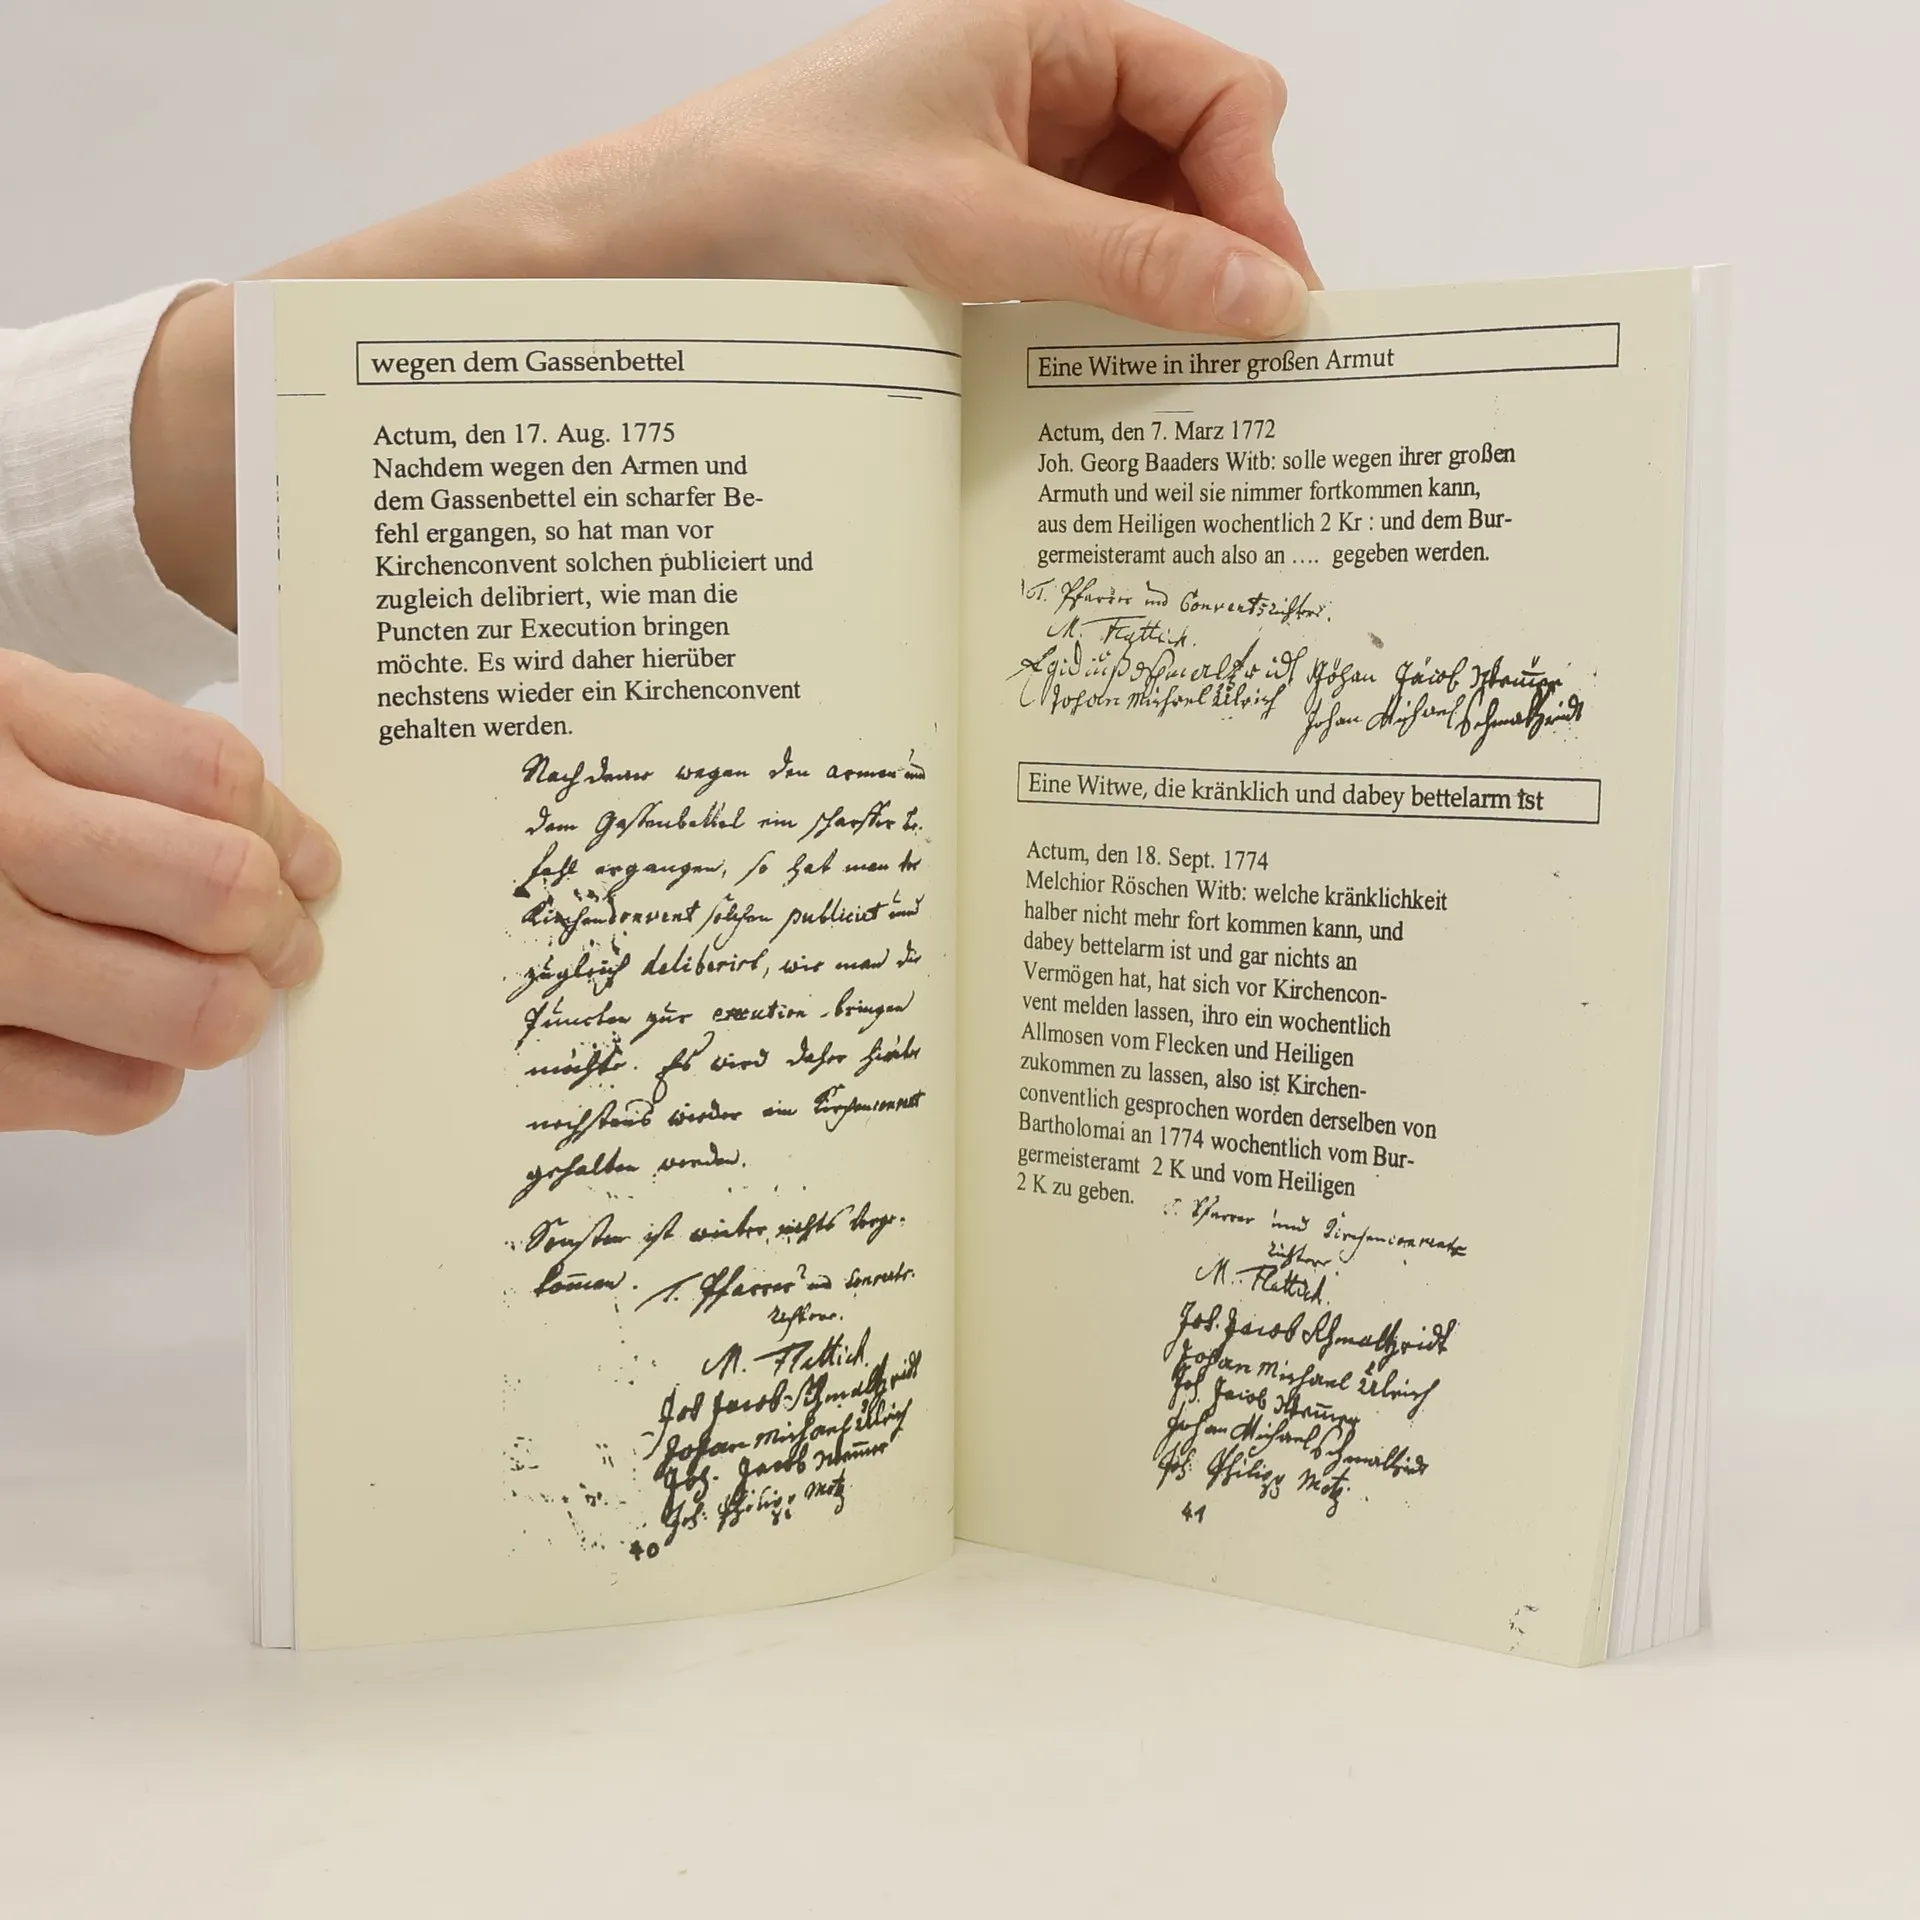 wegen dem Gassenbettel
Actum, den 17. Aug. 1775
Nachdem wegen den Armen und
dem Gassenbettel ein scharfer Be-
fehl ergangen, so hat man vor
Kirchenconvent solchen publiciert und
zugleich delibriert, wie man die
Puncten zur Execution bringen
möchte. Es wird daher hierüber
nechstens wieder ein Kirchenconvent
gehalten werden.
Nachdeme wegen den armen und
dem Gassenbettel ein scharffer Be-
fehl ergangen, so hat man vor
Kirchenconvent solchen publicirt und
zugleich deliberirt, wie man die
Puncten zur execution bringen
möchte. Es wird daher hierüber
nechstens wieder ein Kirchenconvent
gehalten werden.
Sonsten ist weiter nichts vorge-
kommen. T. Pfarrer und Convents-
richtere.
M. Flattich.
Joh Jacob Schmaltzridt
Johan Michael Ulrich
Joh. Jacob
Joh: Philipp Motz
40
Eine Witwe in ihrer großen Armut
Actum, den 7. Marz 1772
Joh. Georg Baaders Witb: solle wegen ihrer großen
Armuth und weil sie nimmer fortkommen kann,
aus dem Heiligen wochentlich 2 Kr : und dem Bur-
germeisteramt auch also an .... gegeben werden.
T. Pfarrer und Conventsrichtere.
M. Flattich.
Egidius Schmaltzridt Johan Jacob
Johan Michael Ulrich Johan Michael Schmaltzridt
Eine Witwe, die kränklich und dabey bettelarm ist
Actum, den 18. Sept. 1774
Melchior Röschen Witb: welche kränklichkeit
halber nicht mehr fort kommen kann, und
dabey bettelarm ist und gar nichts an
Vermögen hat, hat sich vor Kirchencon-
vent melden lassen, ihro ein wochentlich
Allmosen vom Flecken und Heiligen
zukommen zu lassen, also ist Kirchen-
conventlich gesprochen worden derselben von
Bartholomai an 1774 wochentlich vom Bur-
germeisteramt 2 K und vom Heiligen
2 K zu geben.
T. Pfarrer und Kirchenconvents
richtere
M. Flattich.
Joh. Jacob Schmaltzridt
Johan Michael Ulrich
Joh. Jacob
Johan Michael Schmaltzridt
Joh: Philipp Motz
41